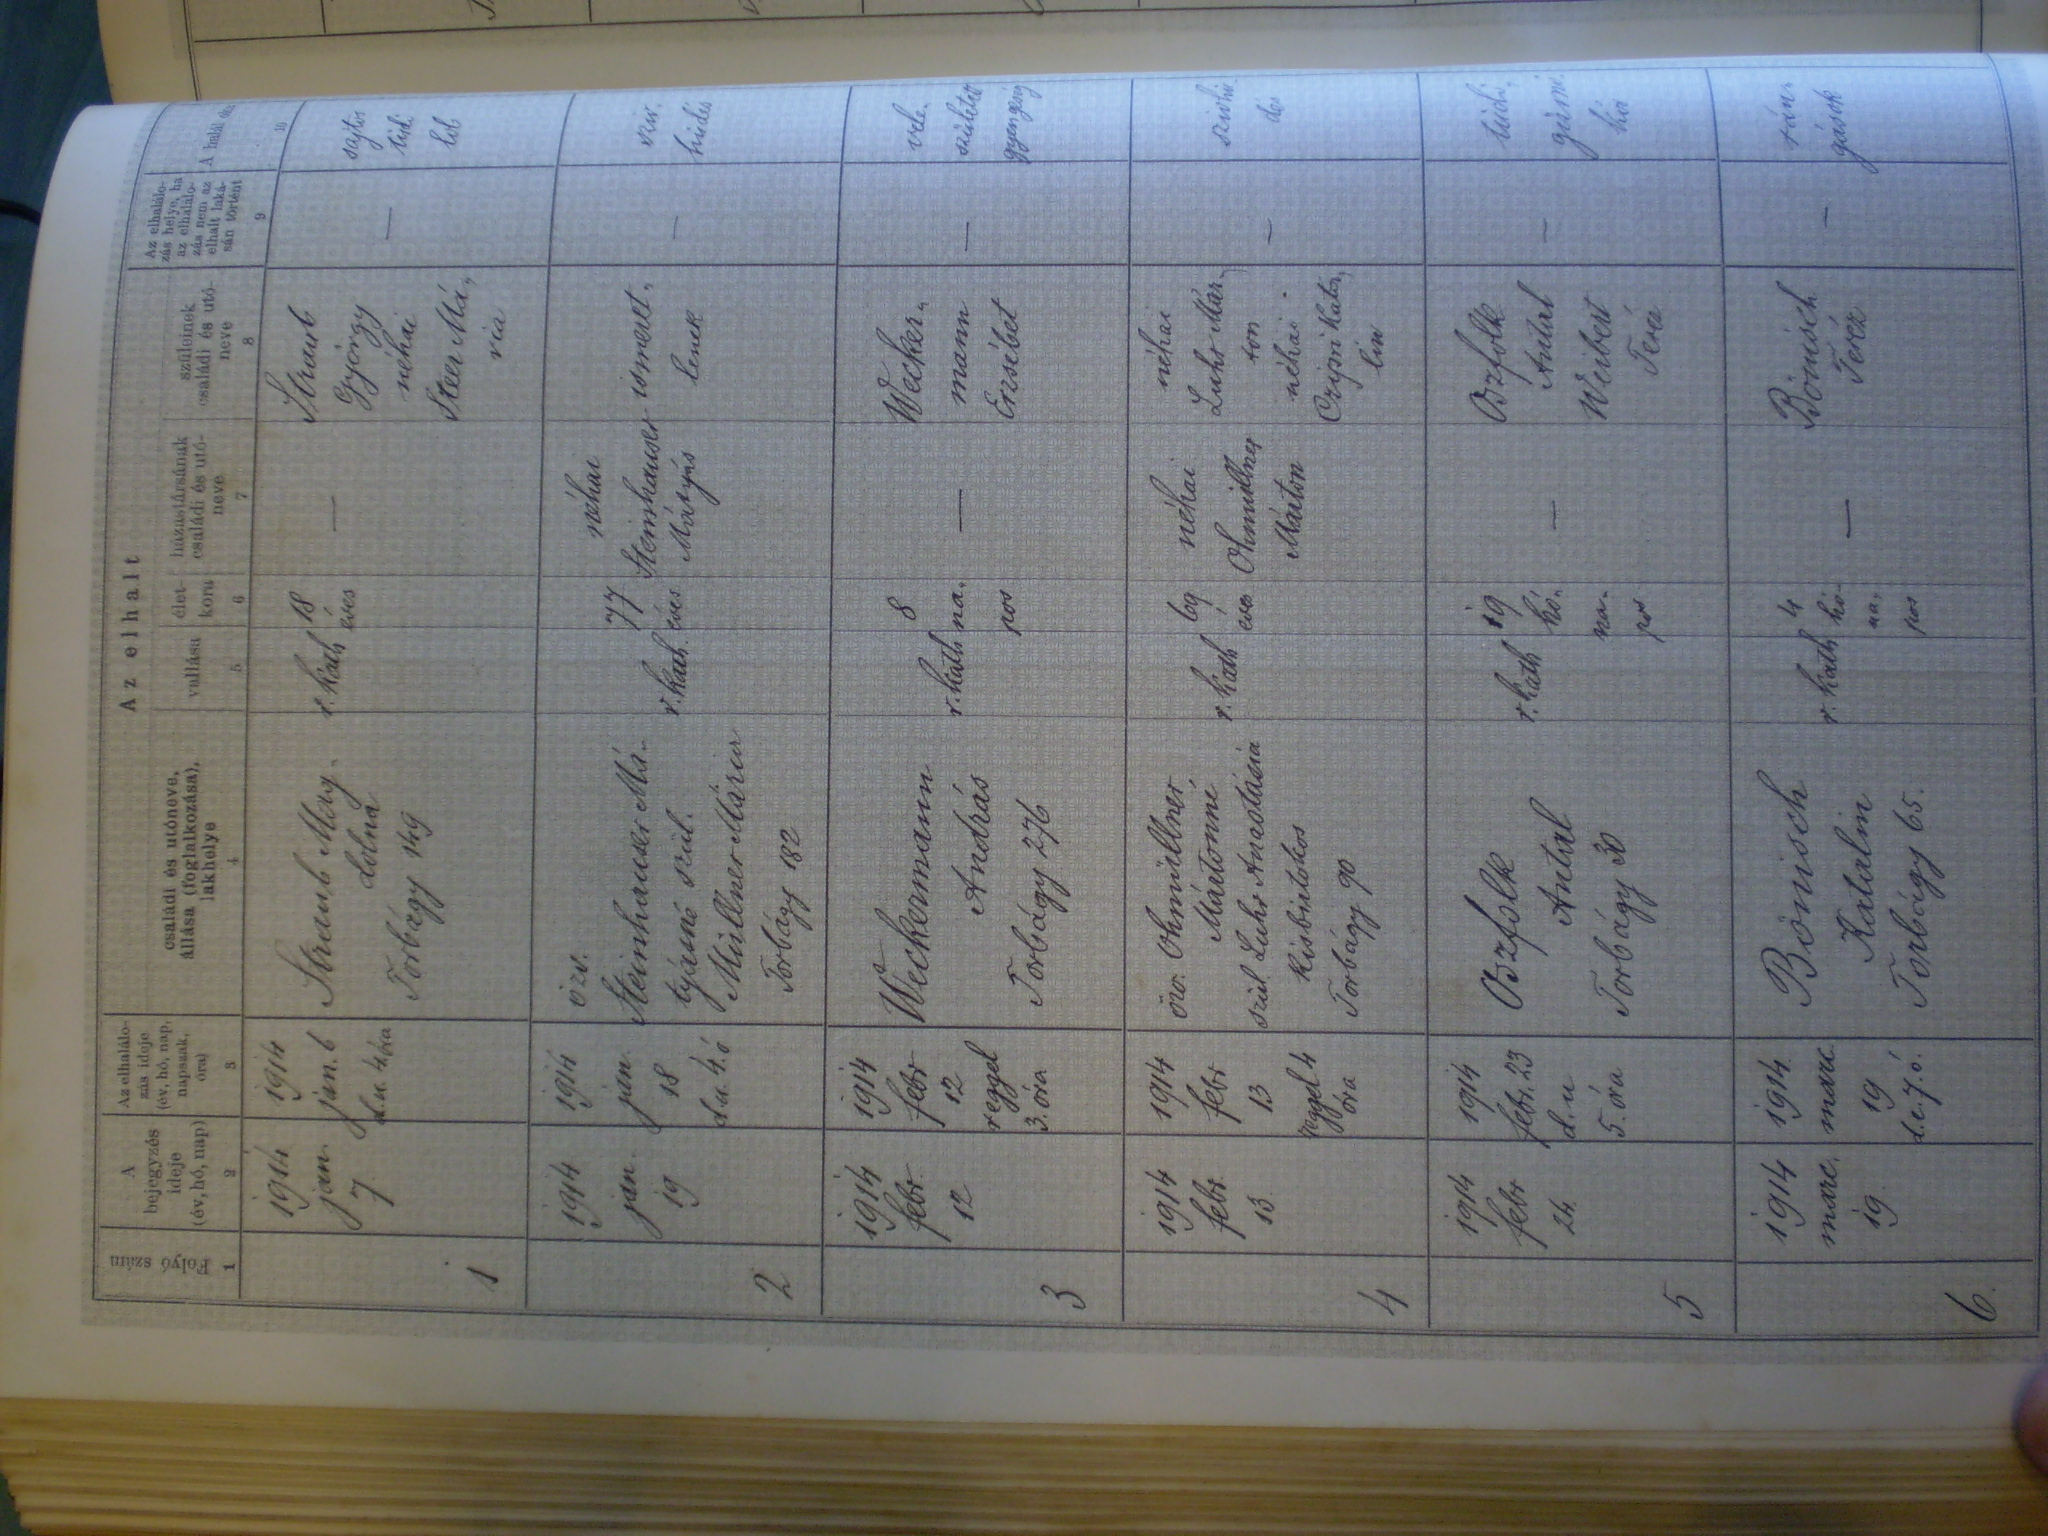 Az elhalt
Folyó szám
A bejegyzés ideje (év, hó, nap)
Az elhalálo-
zás ideje
(év, hó, nap,
napszak,
óra)
családi és utóneve,
állása (foglalkozása),
lakhelye
vallása
élet-
kora
házastársának
családi és utó-
neve
szüleinek
családi és utó-
neve
Az elhalálo-
zás helye, ha
az elhalálo-
zás nem az
elhalt laká-
sán történt
A halál
1 2 3 4 5 6 7 8 9 10
1
1914
jan.
7
1914
jan. 6
d.u. 4 óra
Straub Mag-
dolna
Torbágy 149
r. kath
18
éves
—
Straub
Gyöngy
néhai
Steer Má-
ria
—
2
1914
jan.
19
1914
jan
18
d.u. 4. ó
özv.
Steinhauser Má-
tyásné szül.
Müllner Mária
Torbágy 182
r. kath.
77
éves
néhai
Steinhauser
Mátyás
ismeret-
lenek
—
szív-
hűdés
3
1914
febr.
12
1914
febr
12
reggel
3. óra
Weckermann
András
Torbágy 276
r. kath
8
na-
pos
—
Wecker-
mann
Erzsébet
—
vele
született
gyengeség
4
1914
febr.
13
1914
febr
13
reggel 4
óra
özv. Ohmüllner
Mártonné
szül Luhr Anastásia
kisbirtokos
Torbágy 90
r. kath
69
éves
néhai
Ohmüllner
Márton
néhai
Luhr Már-
ton
néhai
Katа-
lin
—
szívhű-
dés
5
1914
febr
24
1914
febr. 23
d.u
5. óra
Oszfolk
Antal
Torbágy 30
r. kath
19
hó-
na-
pos
—
Oszfolk
Antal
Weibert
Teréz
—
6.
1914
marc.
19
1914
marc.
19
d.e. 7. ó.
Bönisch
Katalin
Torbágy 65.
r. kath
4
hó-
na-
pos
—
Bönisch
Teréz
—
rán-
gások